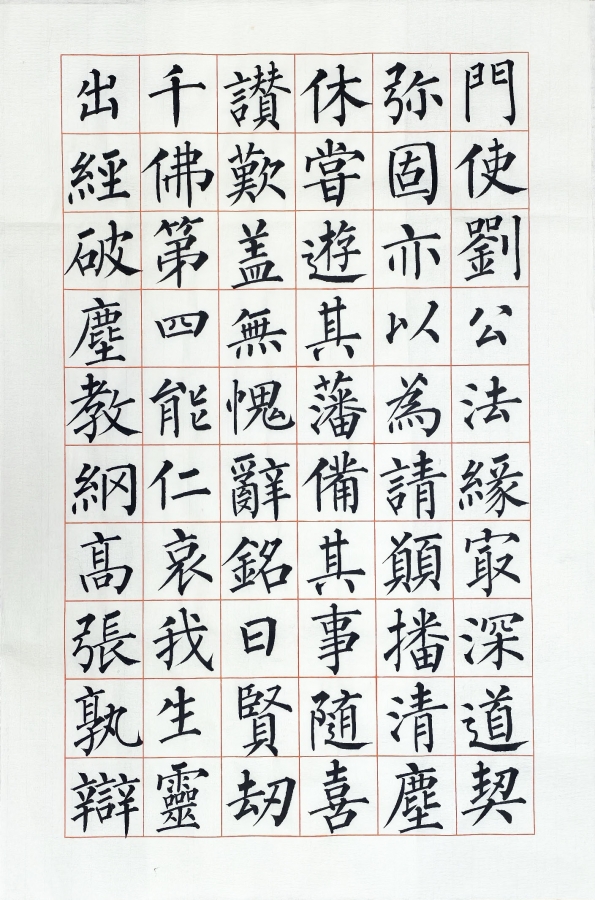 門使劉公法緣㝡深道契
弥固亦以為請願播清塵
休甞遊其藩備其事随喜
讃歎盖無愧辭銘曰賢劫
千佛第四能仁哀我生靈
出經破塵教網高張孰辯